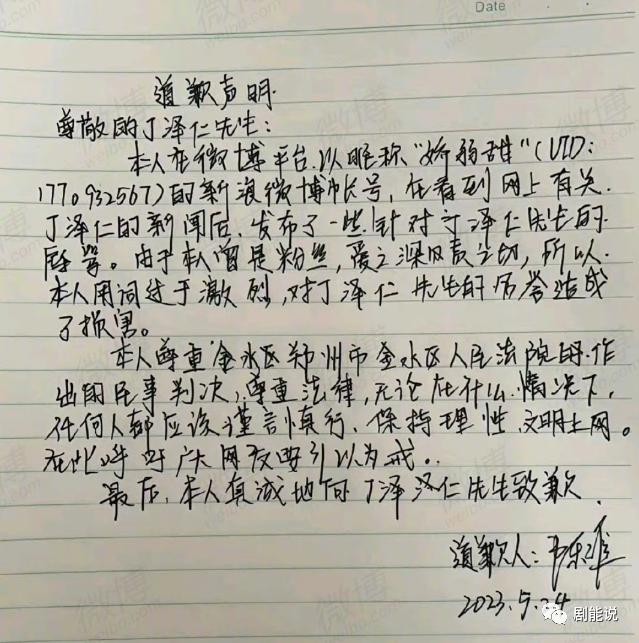 Date
道歉声明
尊敬的丁泽仁先生：
本人在微博平台以昵称"娇弱甜"(UID:
1770932567)的新浪微博帐号，在看到网上有关
丁泽仁的新闻后，发布了一些针对丁泽仁先生的
辱骂。由于本人曾是粉丝，爱之深风责之切，所以
本人用词过于激烈，对丁泽仁先生的名誉造成
了损害。
本人尊重金水区郑州市金水区人民法院所作
出的民事判决，尊重法律，无论在什么情况下，
任何人都应该谨言慎行、保持理性、文明上网。
在此呼吁广大网友要引以为戒。
最后，本人真诚地向丁泽泽仁先生致歉
道歉人：
2023.5.24
剧能说
微博
weibo.com